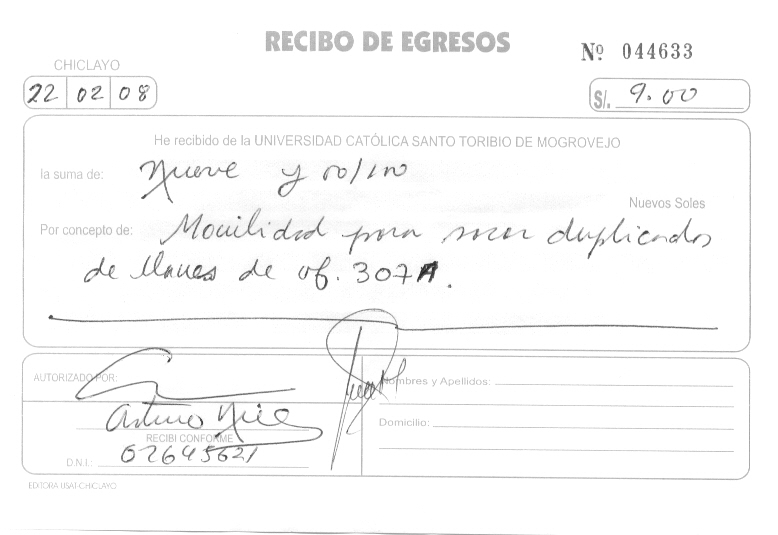 RECIBO DE EGRESOS
Nº 044633
CHICLAYO
22 02 08
S/. 9.00
He recibido de la UNIVERSIDAD CATÓLICA SANTO TORIBIO DE MOGROVEJO
la suma de: Nueve y 00/100
Nuevos Soles
Por concepto de: Movilidad para sacar duplicados
de llaves de of. 307A.
AUTORIZADO POR:
Nombres y Apellidos:
Arturo
RECIBI CONFORME
Domicilio:
D.N.I.: 02645621
EDITORA USAT-CHICLAYO